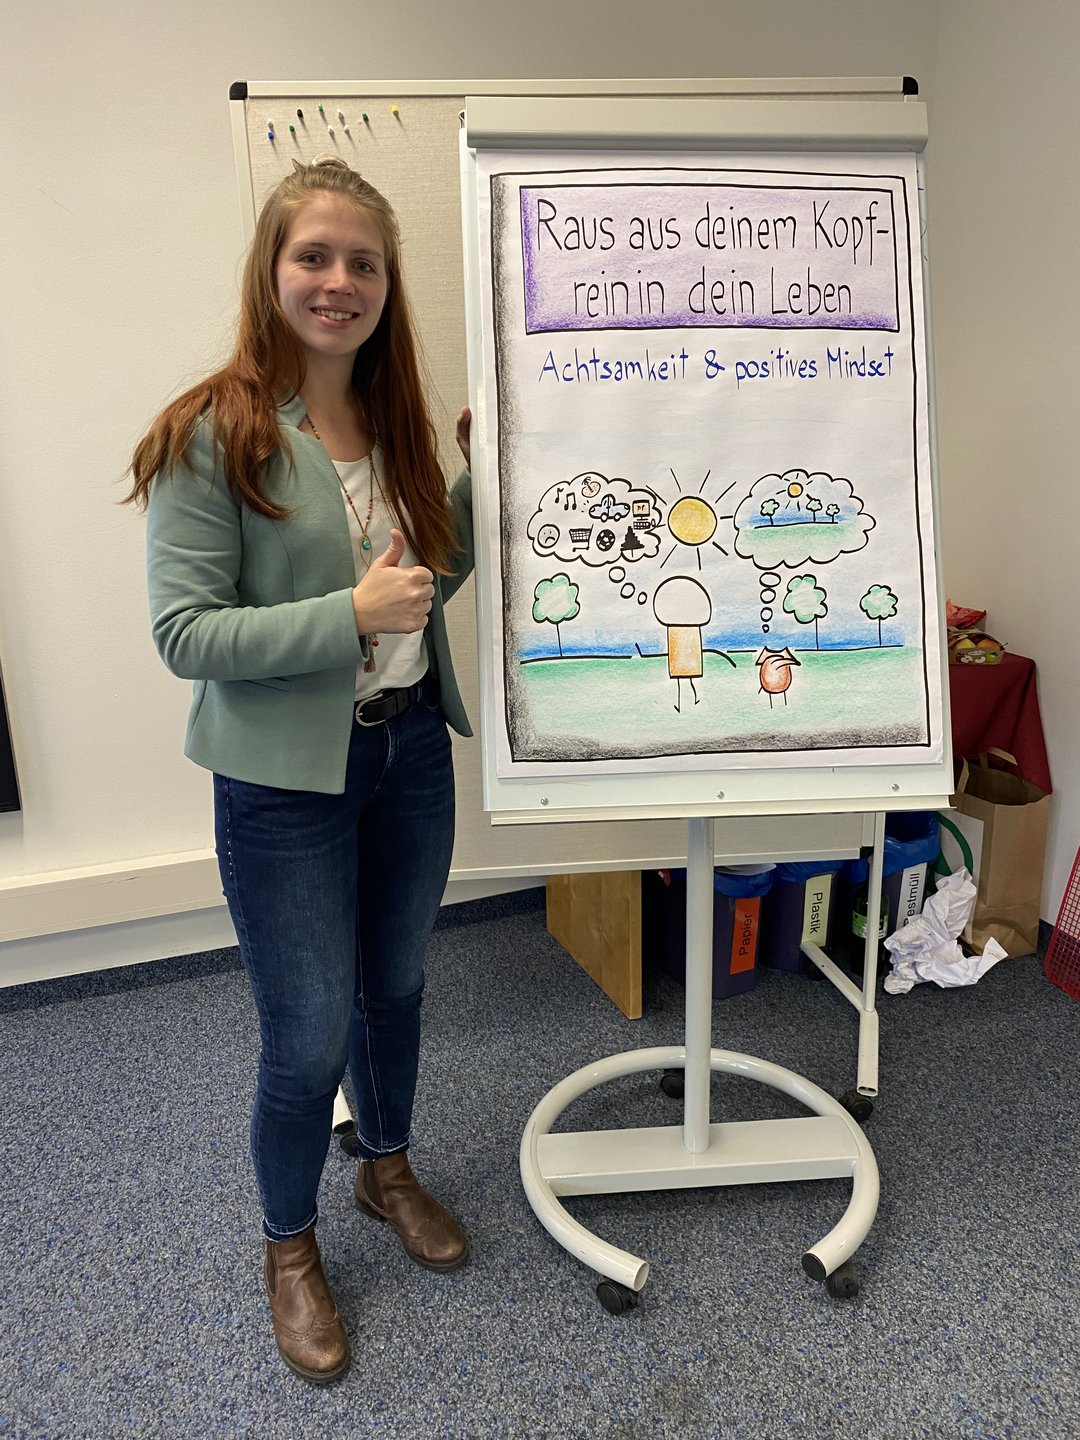 Raus aus deinem Kopf-
rein in dein Leben
Achtsamkeit & positives Mindset
Papier
Plastik